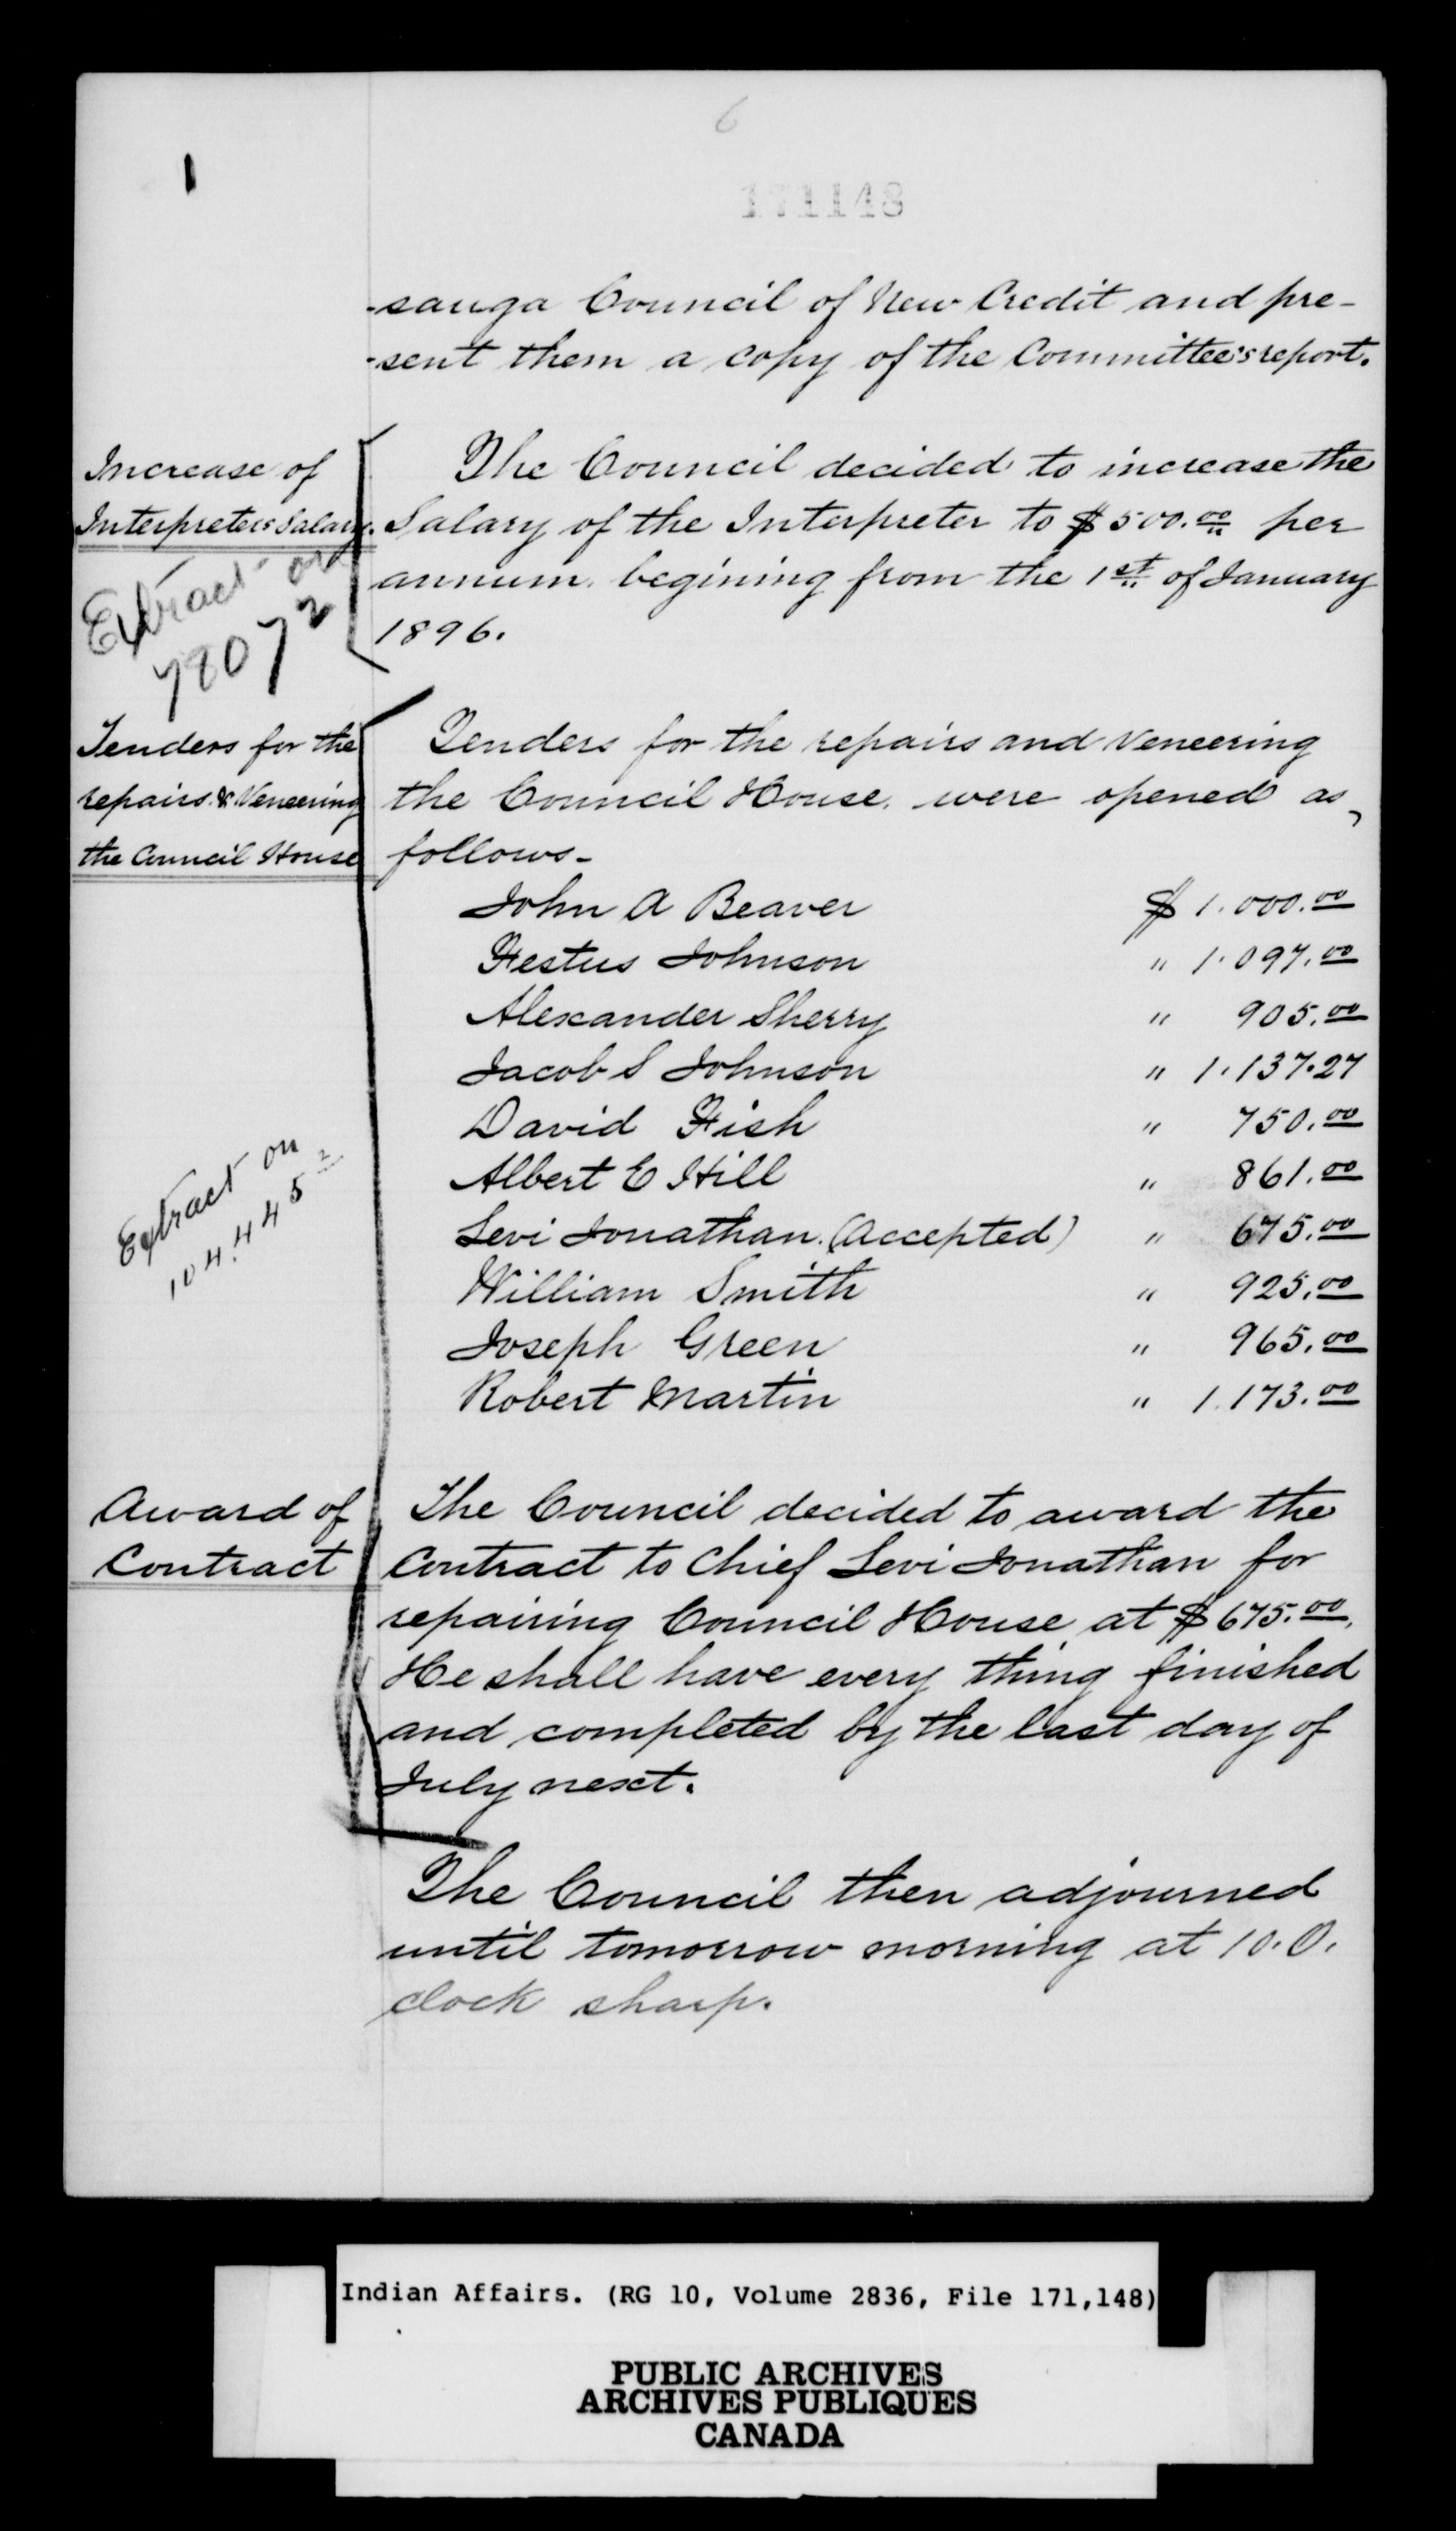 6
171148
-sauga Council of New Credit and pre-
-sent them a copy of the Committee's report.
Increase of
Interpreters Salary.
Extract on
78072
The Council decided to increase the
Salary of the Interpreter to $500.00 per
annum. begining from the 1st of January
1896.
Tenders for the
repairs & Veneering
the Council House
Tenders for the repairs and Veneering
the Council House. were opened as,
follows-
John A Beaver $ 1.000.00
Festus Johnson " 1.097.00
Alexander Sherry " 905.00
Jacob S Johnson " 1.137.27
David Fish " 750.00
Albert E Hill " 861.00
Levi Jonathan. (Accepted) " 675.00
William Smith " 925.00
Joseph Green " 965.00
Robert Martin " 1.173.00
Extract on
104.445 2
Award of
Contract
The Council decided to award the
Contract to Chief Levi Jonathan for
repairing Council House at $675.00.
He shall have every thing finished
and completed by the last day of
July next.
The Council then adjourned
until tomorrow morning at 10.O.
clock sharp.
Indian Affairs. (RG 10, Volume 2836, File 171,148)
PUBLIC ARCHIVES
ARCHIVES PUBLIQUES
CANADA